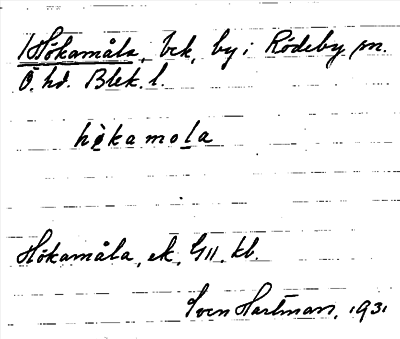 Hökamåla, bek, by i Rödeby sn.
Ö. hd. Blek. l.
hökamola
Hökamåla, ek, G11. kb.
Sven Hartman, 1931